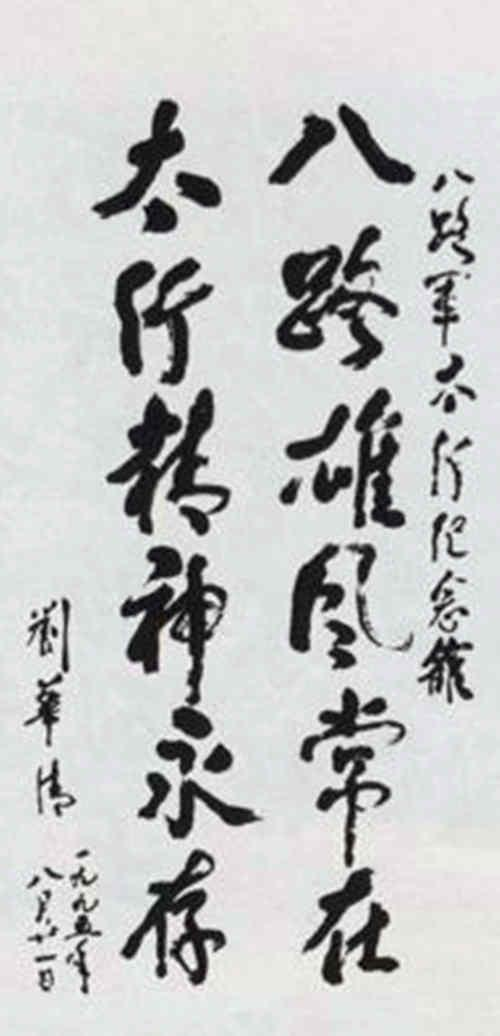 八路军太行纪念馆
八路雄风常在
太行精神永存
劉華清
一九九五年
八月廿一日